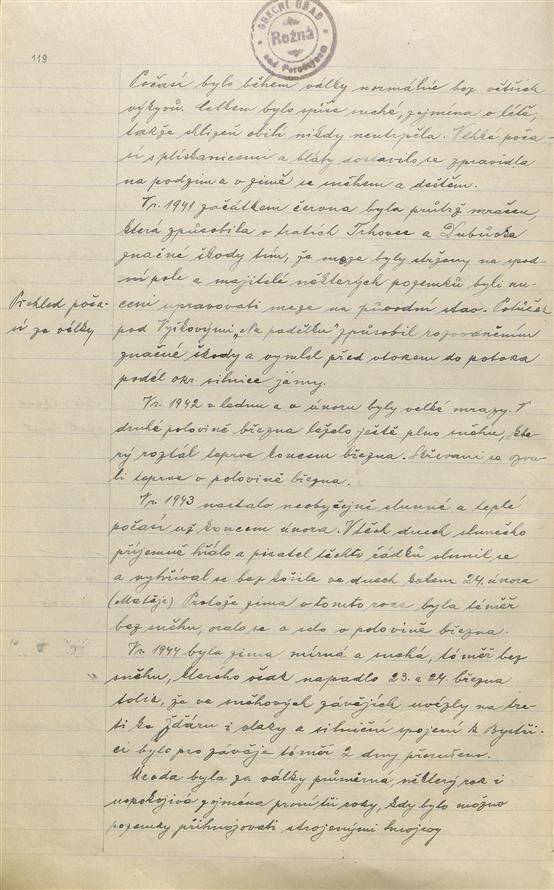 119
OBECNÍ ÚŘAD
Rožná
nad Pernštejnem
Počasí bylo během války normálné bez větších
výkyvů. Celkem bylo spíše suché, zejména v létě,
takže sklizeň obilí nikdy neutrpěla. Vlhké poča-
sí s plískanicemi a bláty dostavilo se zpravidla
na podzim a v zimě se sněhem a deštěm.
V r. 1941 začátkem června byla průtrž mračen,
která způsobila v tratích Trhovce a Dubůvka
značné škody tím, že meze byly strženy na spod-
ní pole a majitelé některých pozemků byli nu-
ceni upravovati meze na původní stav. Potůček
Přehled poča-
sí za války
pod Vyškovými „Na padělku" způsobil rozvodněním
značné škody a vymlel před vtokem do potoka
podél okr. silnice jámy.
V r. 1942 v lednu a v únoru byly velké mrazy. V
druhé polovině března leželo ještě plno sněhu, kte-
rý roztál teprve koncem března. Skřivani se ozva-
li teprve v polovině března.
V r. 1943 nastalo neobyčejně slunné a teplé
počasí už koncem února. V těch dnech slunéčko
příjemně hřálo a pisatel těchto řádků slunil se
a vyhříval se bez košile ve dnech kolem 24. února
(Matěje) Protože zima v tomto roce byla téměř
bez sněhu, oralo se a selo v polovině března.
V r. 1944 byla zima mírná a suchá, téměř bez
sněhu, kterého však napadlo 23. a 24. března
tolik, že ve sněhových závějích uvízly na tra-
ti ke Žďáru i vlaky a silniční spojení k Bystři-
ci bylo pro závěje téměř 2 dny přerušeno.
Úroda byla za války průměrná, některý rok i
uspokojivá zejména první tři roky, kdy bylo možno
pozemky přihnojovati strojenými hnojivy